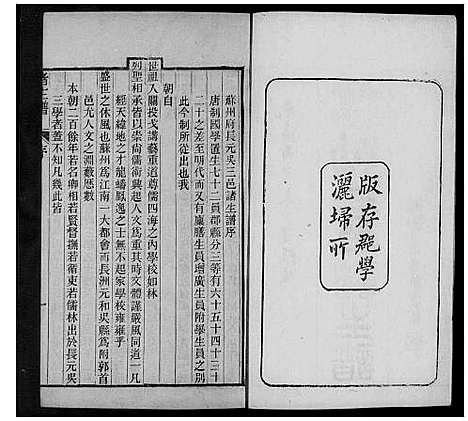 版存郡學
灑埽所
蘇州府長元吳三邑諸生譜序
唐制國學生七十二員郡縣分三等有六十五十四十三十
二十之差至明代而又有廩膳生員增廣生員附學生員之別
此今制所從出也我
朝自
世祖入關投戈講藝重道尊儒四海之內學校如林
列聖相承皆以崇尚儒術振起人文爲重其時文體謹嚴風同道一凡
經天緯地之才龍蟠鳳逸之士無不起家學校雍雍乎
盛世之休風也蘇州爲江南一大都會而長洲元和吳縣爲附郭首
邑尤人文之淵藪歷數
本朝二百餘年若名卿相若賢督撫若循吏若儒林出於長元吳
三學者蓋不知凡幾此皆
諸生譜
序
一